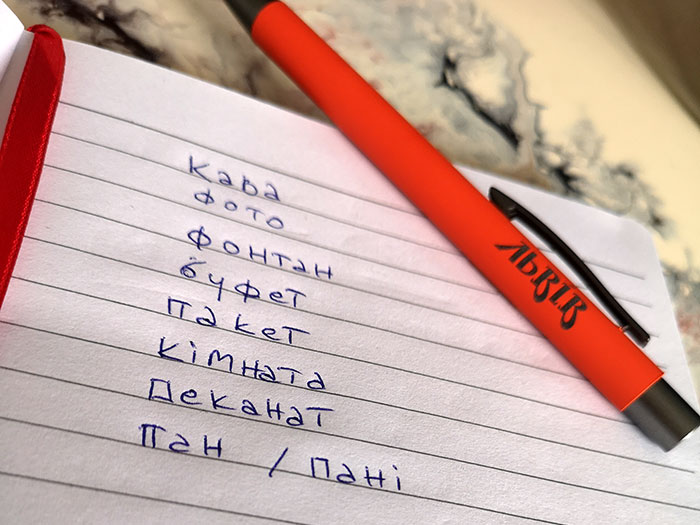 Кава
фото
фонтан
буфет
пакет
кімната
Деканат
пан / пані
ЛЬВІВ